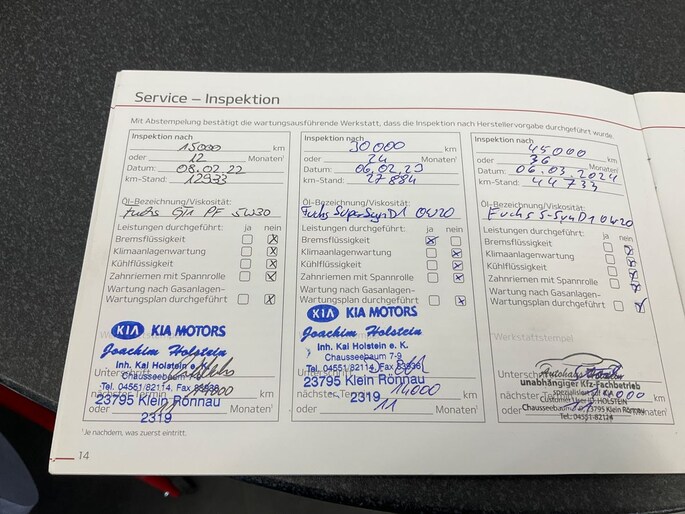 Service – Inspektion
Mit Abstempelung bestätigt die wartungsausführende Werkstatt, dass die Inspektion nach Herstellervorgabe durchgeführt wurde
Inspektion nach
15000 km
oder 12 Monaten¹
Datum: 08.02.22
km-Stand: 12933
Öl-Bezeichnung/Viskosität:
Fuchs GT1 PF 5W30
Leistungen durchgeführt: ja nein
Bremsflüssigkeit
Klimaanlagenwartung
Kühlflüssigkeit
Zahnriemen mit Spannrolle
Wartung nach Gasanlagen-
Wartungsplan durchgeführt
KIA KIA MOTORS
Joachim Holstein
Inh. Kai Holstein e. K.
Chausseebaum 7-9
Unterschrift
Tel. 04551/82114, Fax 83936
nächster Termin km
23795 Klein Rönnau
oder
2319
Inspektion nach
30000 km
oder 24 Monaten¹
Datum: 06.02.23
km-Stand: 27884
Öl-Bezeichnung/Viskosität:
Fuchs SuperSynD1 0W20
Leistungen durchgeführt: ja nein
Bremsflüssigkeit
Klimaanlagenwartung
Kühlflüssigkeit
Zahnriemen mit Spannrolle
Wartung nach Gasanlagen-
Wartungsplan durchgeführt
KIA KIA MOTORS
Joachim Holstein
Inh. Kai Holstein e. K.
Chausseebaum 7-9
Unterschrift
Tel. 04551/82114, Fax 83936
23795 Klein Rönnau
nächster Termin 14000 km
2319
oder 11
Inspektion nach
45000 km
oder 36 Monaten¹
Datum: 06.03.2024
km-Stand: 44733
Öl-Bezeichnung/Viskosität:
Fuchs S-SynD1 0W20
Leistungen durchgeführt: ja nein
Bremsflüssigkeit
Klimaanlagenwartung
Kühlflüssigkeit
Zahnriemen mit Spannrolle
Wartung nach Gasanlagen-
Wartungsplan durchgeführt
Werkstattstempel
Autohaus
Unterschrift
unabhängiger Kfz-Fachbetrieb
nächster km
HOLSTEIN
oder
Chausseebaum 23795 Klein Rönnau
Tel.: 04551-82114
¹Je nachdem, was zuerst eintritt.
14